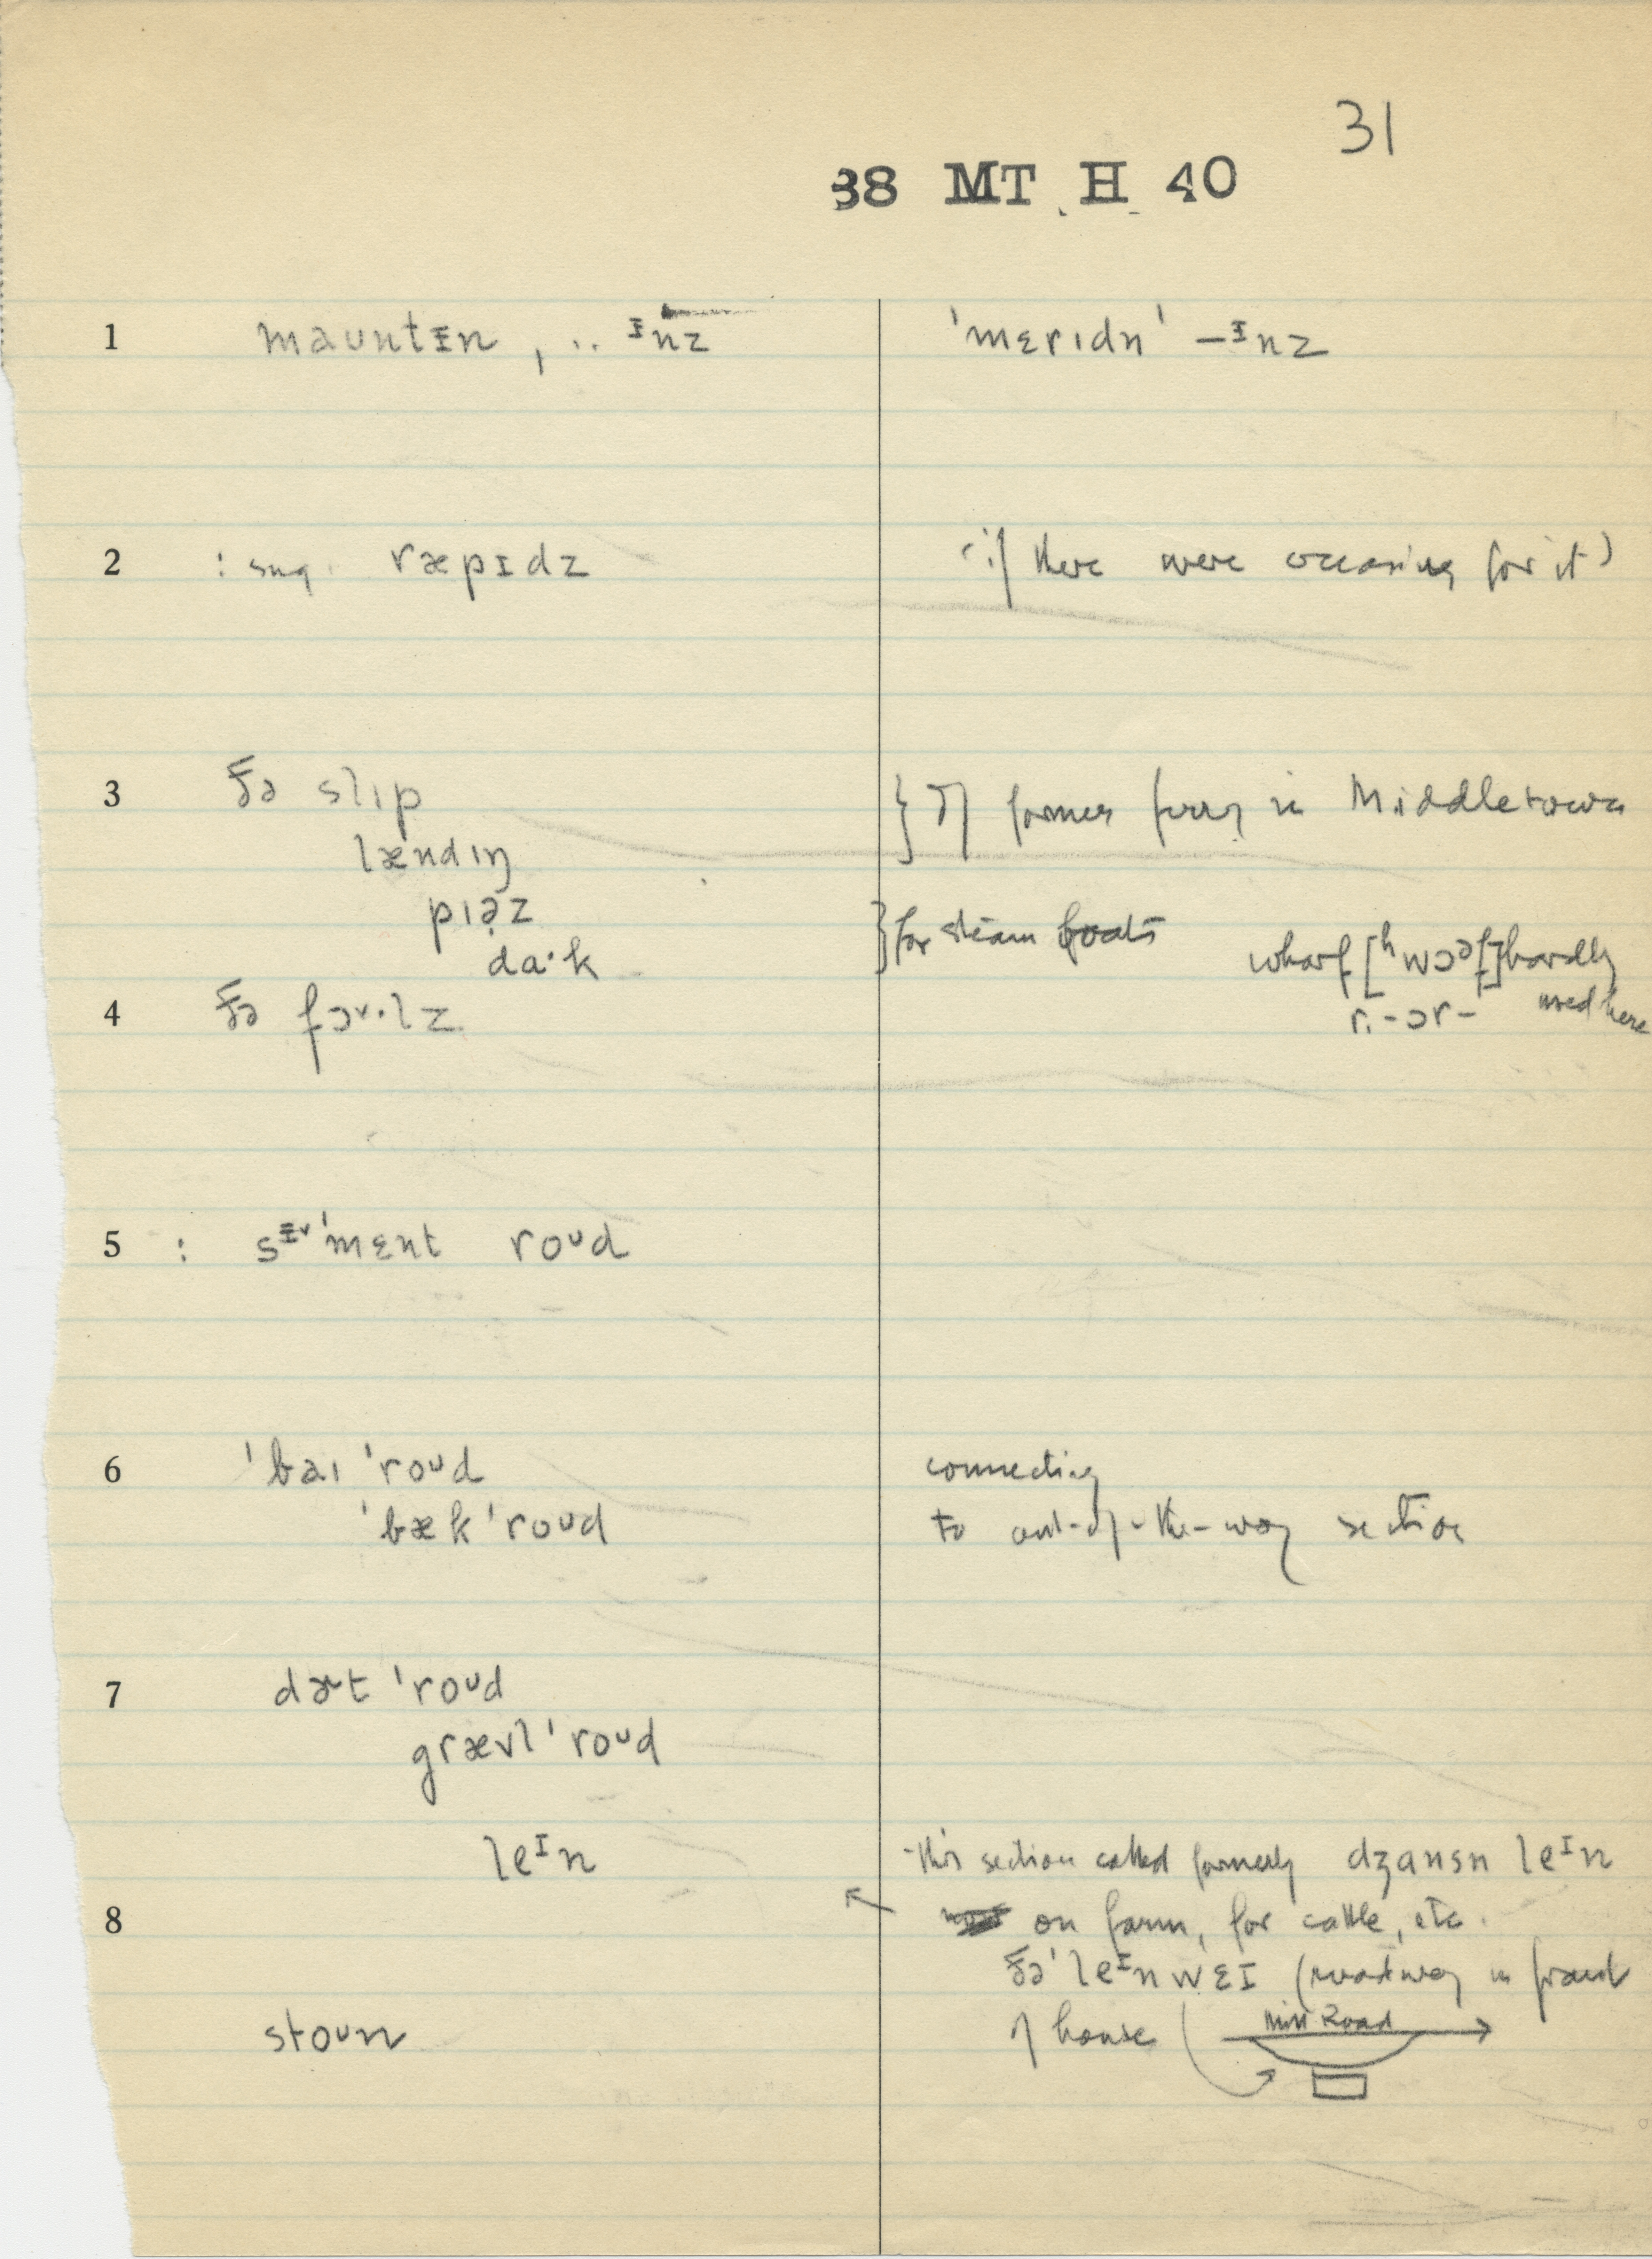 31
38 MT H 40
1 maʊntɪn , .. ᴵnz 'mɛrɪdn' –ᴵnz
2 : sug. ræpɪdz (if there were occasion for it)
3 ðə slɪp } of former ferry in Middletown
lændɪŋ
pɪə̣z } for steam boats
da·k wharf [ʰwɔᵊf] hardly
4 ðə fɔˑlz r. -ɔr- used here
5 : sᴵ'mɛnt roᵘd
6 'baɪ 'roᵘd connecting
'bæk 'roʊd to out-of-the-way section
7 dɚt 'roᵘd
grævl 'roᵘd
leᴵn this section called formerly dʒɑnsn leᴵn
8 on farm, for cattle, etc.
ðə 'leᴵnwɛɪ (roadway in front
stoʊn of house Mill Road